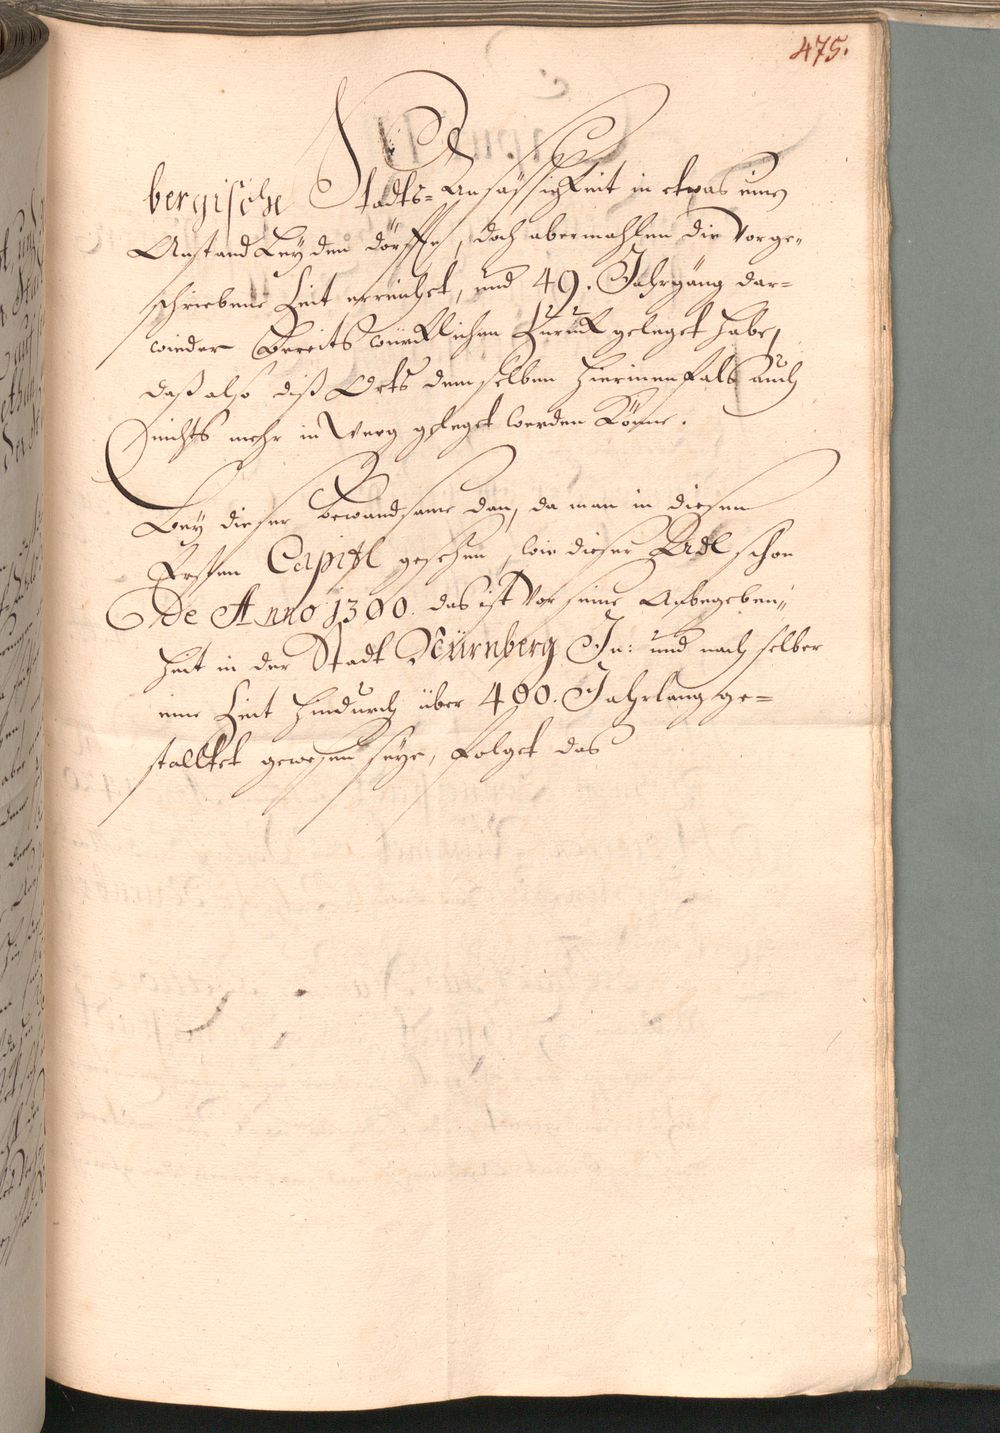 475.
bergische Stadts-Ansässigkeit in etwas einen
Anstand Leyden dörffe, doch abermahlen die Vorge-
schriebene Zeit erreichet, und 49. Jahrgäng dar-
wieder bereits würcklichen Zuruck geleget habe,
daß also diß Orts demselben hierinenfals auch
nichts mehr in Weeg geleget werden Könne.
Bey dieser bewandsame dan, da man in diesem
Ersten Capitl gesehen, wie dieser Adl schon
de Anno 1300. das ist Vor seine Anbegeben-
heit in der Stadt Nürnberg, In: und nach selber
eine Zeit hindurch über 400. Jahrlang ge-
stalltet gewesen seye, folget das